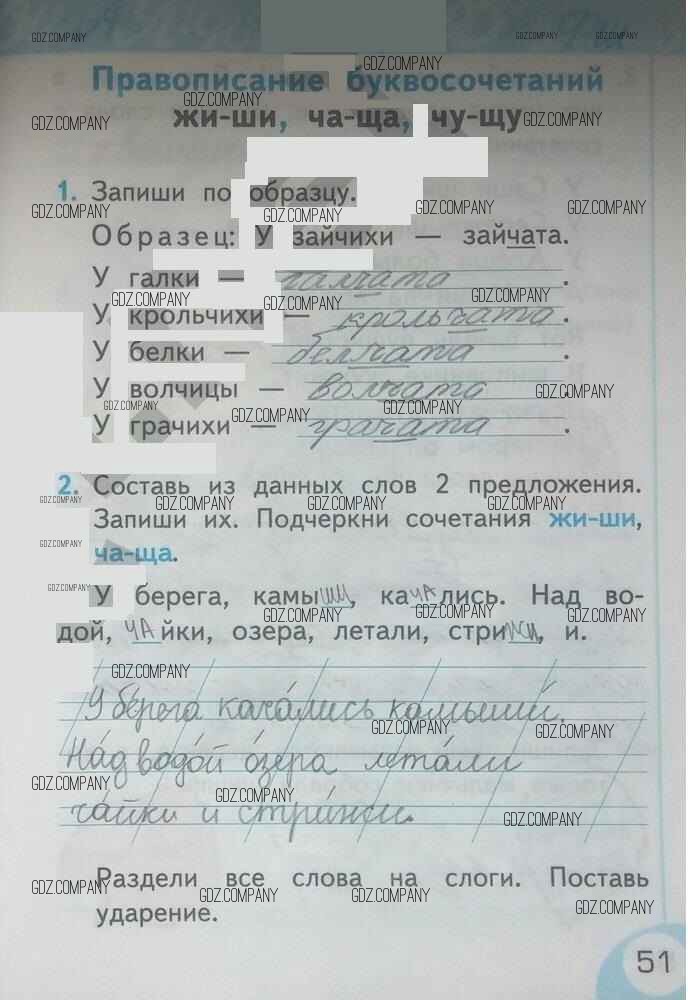 Правописание буквосочетаний
жи-ши, ча-ща, чу-щу
1. Запиши по образцу.
Образец: У зайчихи — зайчата.
У галки — галчата.
У крольчихи — крольчата.
У белки — белчата.
У волчицы — волчата.
У грачихи — грачата.
2. Составь из данных слов 2 предложения.
Запиши их. Подчеркни сочетания жи-ши,
ча-ща.
У берега, камыши, качались. Над во-
дой, чайки, озера, летали, стрижи, и.
У берега качались камыши.
Над водой озера летали
чайки и стрижи.
Раздели все слова на слоги. Поставь
ударение.
51
GDZ.COMPANY